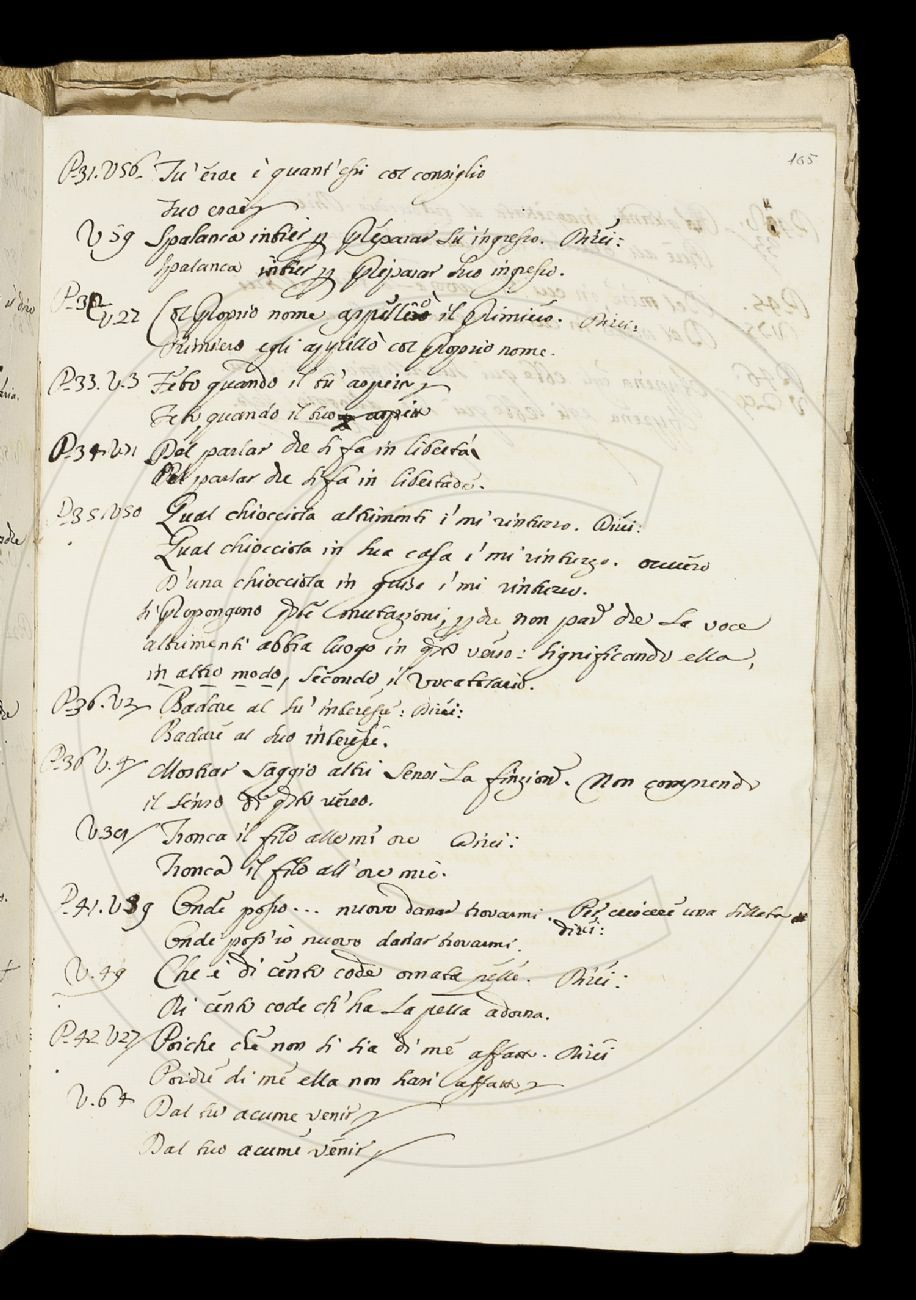 165
P. 31. V 56. Tu' eroe è quant' chi col consiglio
Tuo
V 59 Spalanca intier p preparar su' ingresso. Direi:
Spalanca intier p preparar suo ingresso.
P. 32 V. 22 Col proprio nome appellò il Primiero. Direi:
Primiero egli appellò col proprio nome.
P. 33. V. 3 Febo quando il su' aspetto
Febo quando il suo aspetto
P. 34 V. 71 Del parlar che si fa in libertà
Del parlar che si fa in libertade.
P. 35. V 50 Qual chiocciola altrimenti i' mi rinturo. Direi:
Qual chiocciola in sua casa i' mi rinturo. ovvero
D'una chiocciola in guisa i' mi rinturo.
Si propongono qte mutazioni, pche non par che la voce
altrimenti abbia luogo in qto verso: significando ella,
in altro modo, secondo il Vocabolario.
P. 36. V. 2 Badare al su' interesse: Direi:
Badare al suo interesse.
P. 36 V. 4 Mostrar saggio altri sensi la finzione. Non comprendo
il senso di qto verso.
V. 39 Tronca il filo alle mi' ore Direi:
Tronca il filo all' ore mie.
P. 41. V 39 Onde posso... nuovo danar trovarmi. Per crescere una sillaba
direi:
Onde poss' io nuovo danar trovarmi.
V. 49 Che è di cento code ornata pelle. Direi:
Di cento code ch' ha la pelle adorna.
P. 42 V 27 Poiche che non si sia di me affatto. Direi
Poichè di me ella non affatto
V. 64 Dal su' acume venir
Dal suo acume venir